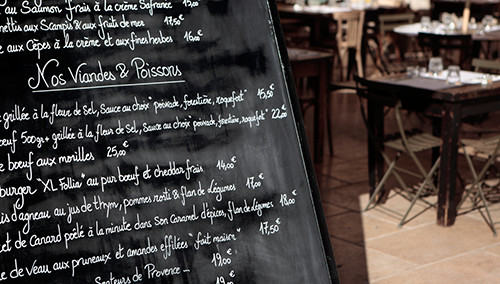 au Saumon frais à la crème Safranée 15,00
nettis aux Scampis & aux fruits de mer 17,50€
e aux Cèpes à la crème et aux fines herbes 16,00€
Nos Viandes & Poissons
grillée à la fleur de sel, Sauce au choix "poivrade, forestière, roquefort" 15,50€
oeuf 500gr+ grillée à la fleur de sel, Sauce au choix "poivrade, forestière, roquefort" 22,00€
e boeuf aux morilles 25,00€
burger "XL Follia" au pur boeuf et cheddar frais 14,00€
is d'agneau au jus de thym, pommes rosti & flan de légumes 17,00€
et de Canard poêlé à la minute dans son Caramel d'épices, flan de légumes 18,00€
e de Veau aux pruneaux et amandes effilées "fait maison" 17,50€
Senteurs de Provence 19,00€
19,00€